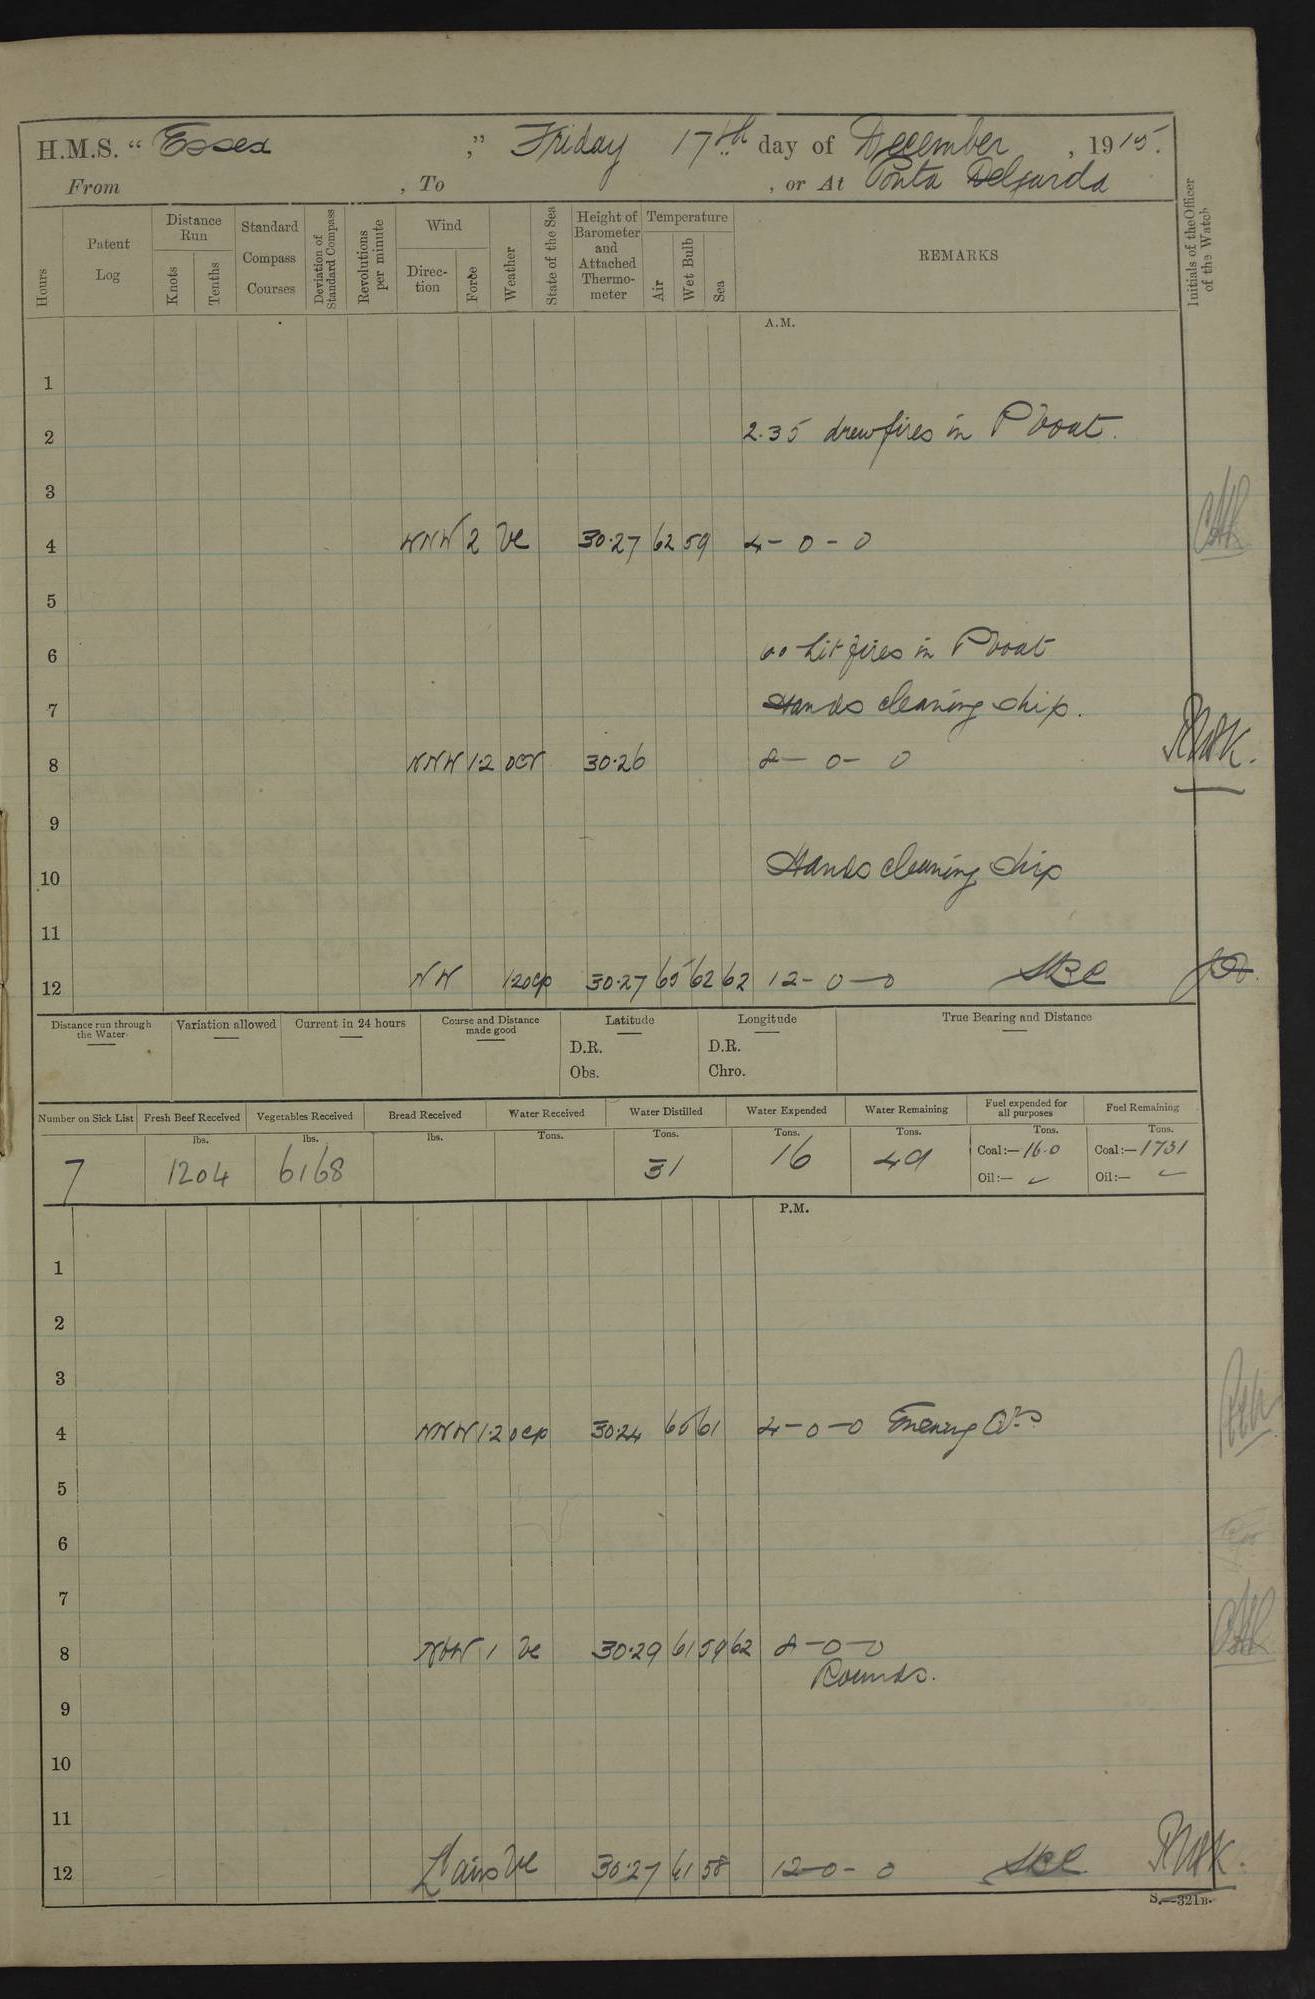 H.M.S. “ Essex ,” Friday 17th day of December , 1915.
From , To , or At Ponta Delgarda
Hours
Patent Log
Distance Run
Knots
Tenths
Standard Compass Courses
Deviation of Standard Compass
Revolutions per minute
Wind
Direction
Force
Weather
State of the Sea
Height of Barometer and Attached Thermometer
Temperature
Air
Wet Bulb
Sea
REMARKS
Initials of the Officer of the Watch
A.M.
1
2 2.35 drew fires in P boat.
3
4 WNW 2 bc 30.27 62 59 4 - 0 - 0
5
6 Lit fires in P boat
7 Hands cleaning ship.
8 NNW 1.2 30.26 8 - 0 - 0
9
10 Hands cleaning ship
11
12 NW 1 2 ocp 30.27 65 62 62 12 - 0 - 0
Distance run through the Water
Variation allowed
Current in 24 hours
Course and Distance made good
Latitude
D.R.
Obs.
Longitude
D.R.
Chro.
True Bearing and Distance
Number on Sick List
Fresh Beef Received
Vegetables Received
Bread Received
Water Received
Water Distilled
Water Expended
Water Remaining
Fuel expended for all purposes
Fuel Remaining
lbs. lbs. lbs. Tons. Tons. Tons. Tons. Tons. Tons.
7 1204 6168 31 16 49 Coal:— 16.0 Coal:— 1731
Oil:— ✓ Oil:— ✓
P.M.
1
2
3
4 NNW 1.2 ocp 30.24 65 61 4 - 0 - 0 Evening Qrs
5
6
7
8 NbW 1 bc 30.29 61 59 62 8 - 0 - 0
Rounds.
9
10
11
12 Lt airs bc 30.27 61 58 12 - 0 - 0
S.—321B.